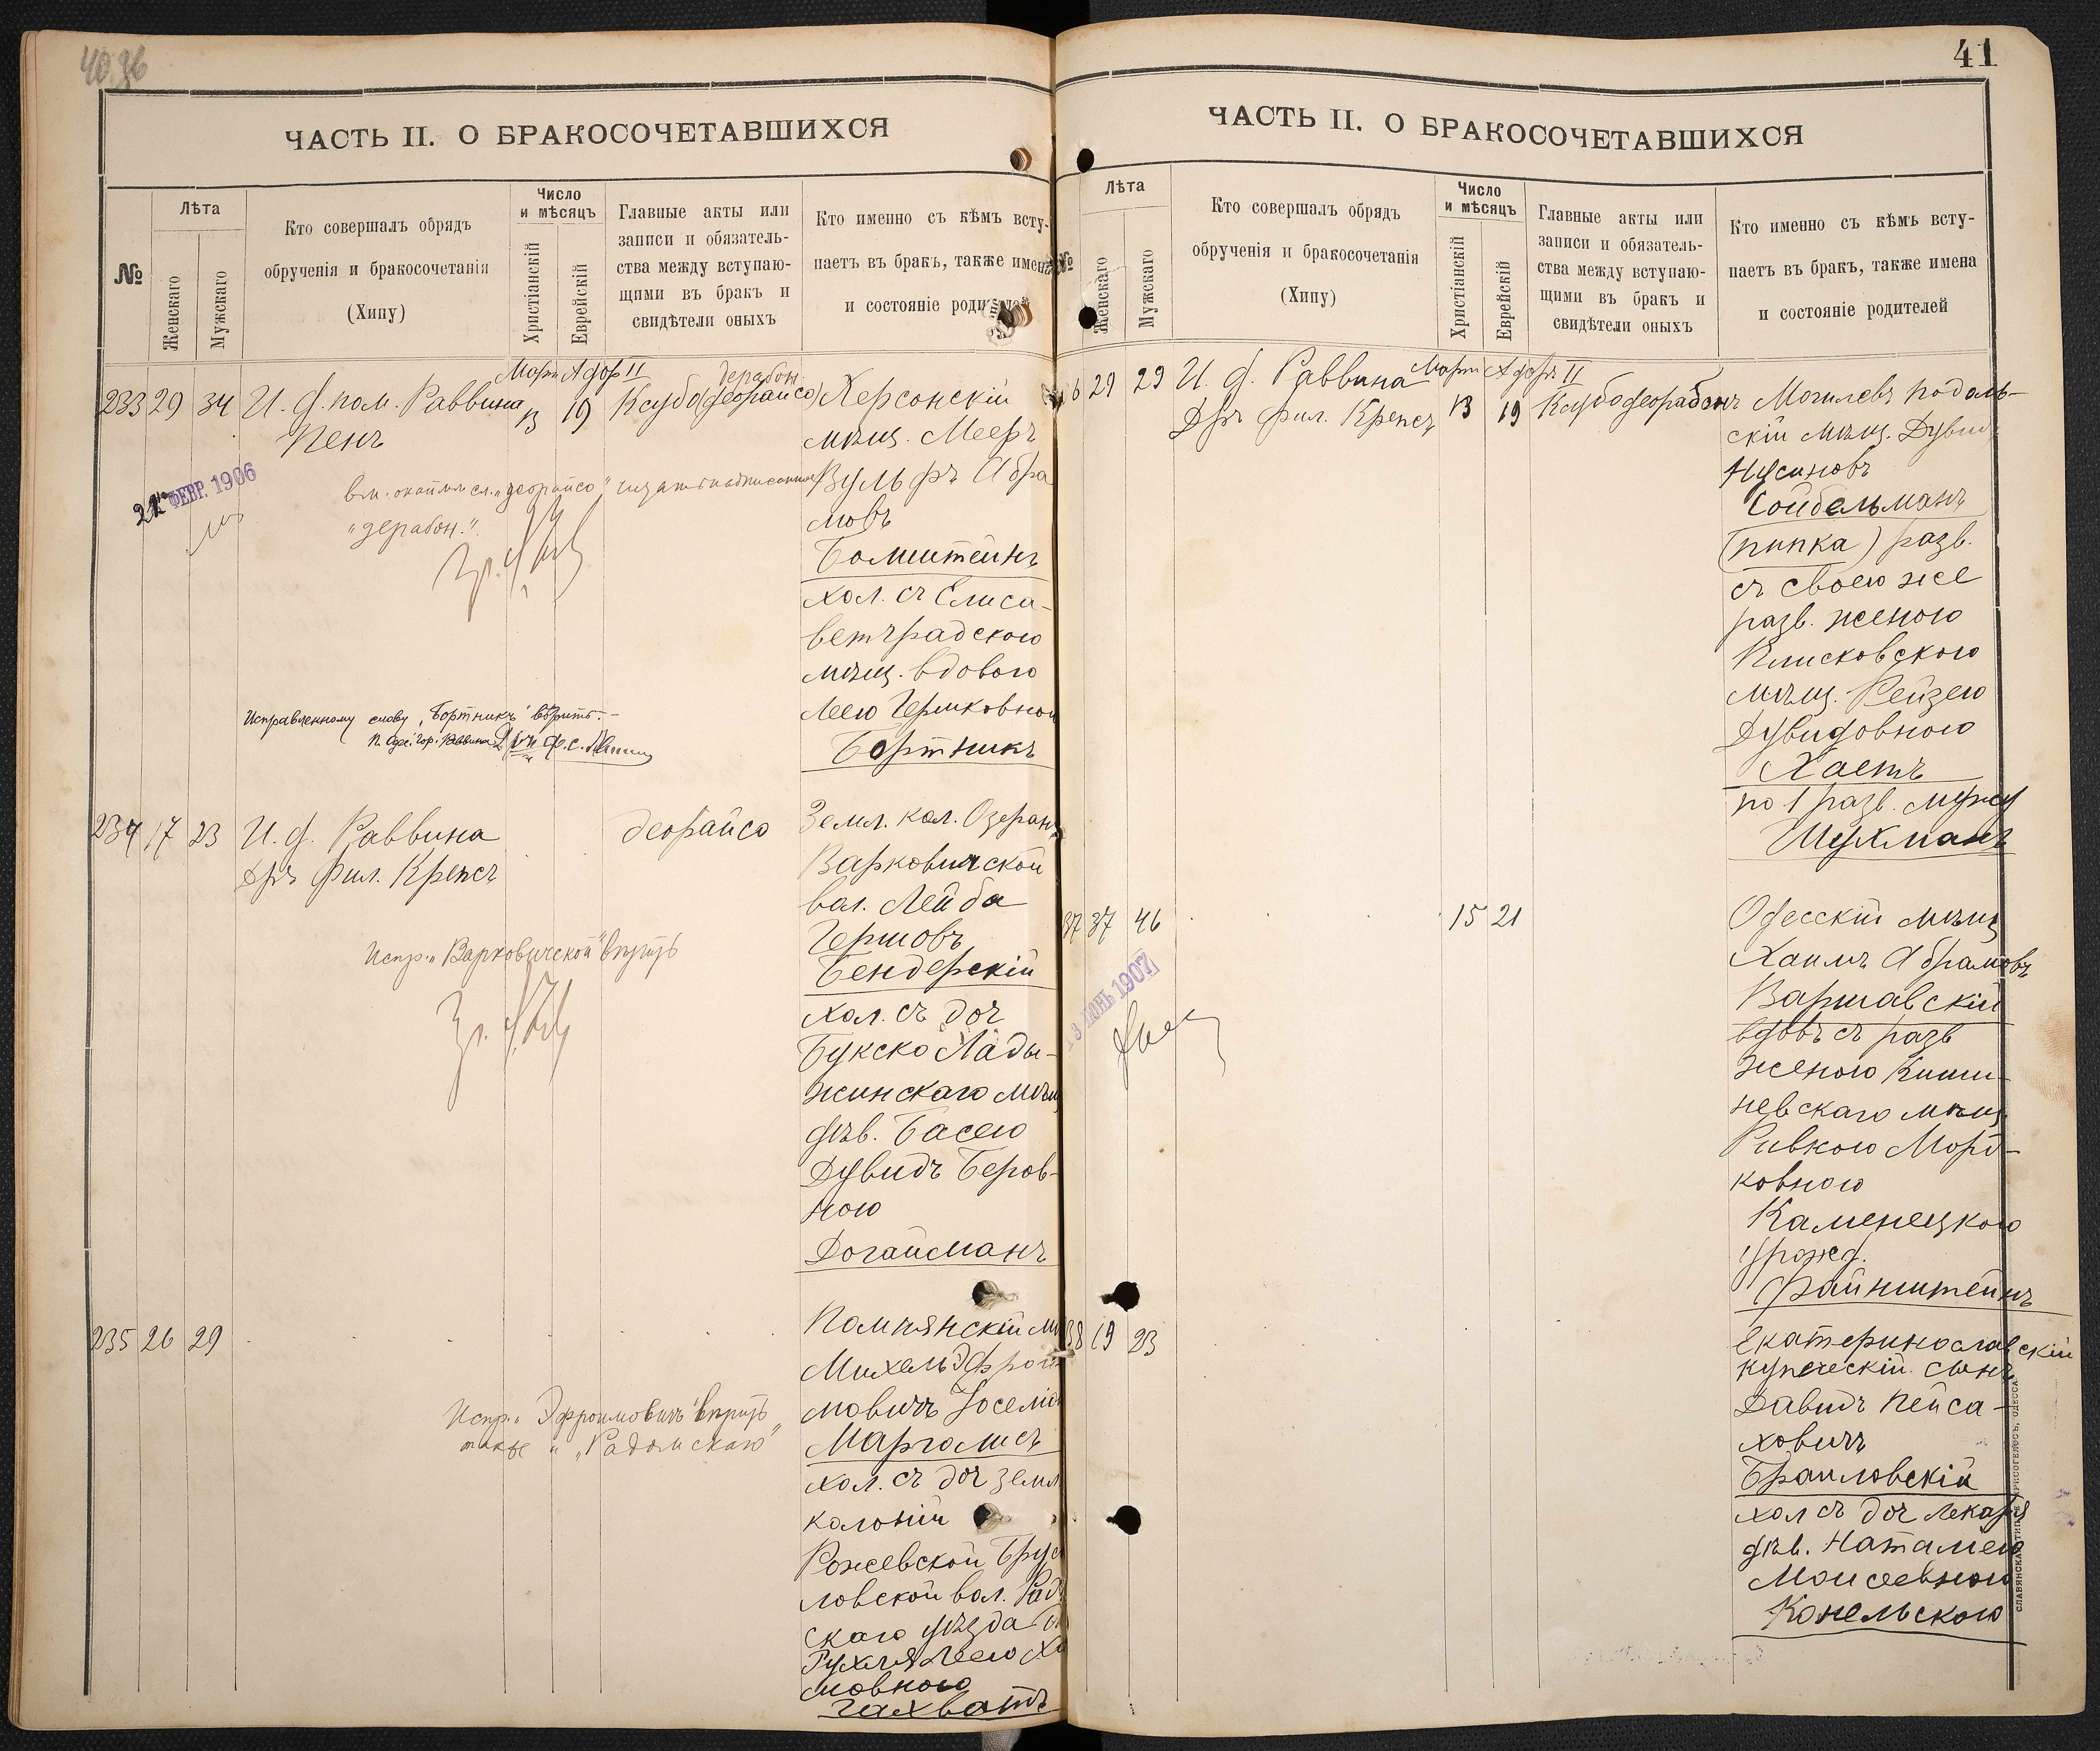 40 36
ЧАСТЬ II. О БРАКОСОЧЕТАВШИХСЯ
№
Лѣта
Женскаго
Мужскаго
Кто совершалъ обрядъ
обрученія и бракосочетанія
(Хипу)
Число
и мѣсяцъ
Христіанскій
Еврейскій
Главные акты или
записи и обязатель-
ства между вступаю-
щими въ бракъ и
свидѣтели оныхъ
Кто именно съ кѣмъ всту-
паетъ въ бракъ, также имена
и состояніе
Мартъ Адоръ II
233 29 34 И. д. пом. Раввина
Пенъ
13 19
Ксубо (деорайсо)
дерабон.
Херсонскій
мѣщ. Мееръ
Вульфъ Абра
мовъ
Бомштейнъ
хол. съ Елиса-
ветградскою
мѣщ. вдовою
Леею Гершковною
Бортникъ
21 ФЕВР. 1906
"дерабон."
Исправленному слову "Бортникъ" вѣрить.-
234 17 23 И. д. Раввина
Дръ фил. Крепсъ
деорайсо
Земл. кол. Озеранъ
Варковичской
вол. Лейба
Гершовъ
Бендерскій
хол. съ доч
Букско Лады-
жинскаго мѣщ
дѣв. Басею
Дувидъ Беров-
ною
Догайсманъ
Испр. "Варковичской" вѣрить
235 26 29
Помпянскій
Михель Эфрои
мовичъ
Марголисъ
хол. съ доч земл
колоніи
Рожевской
ловской вол.
скаго уѣзда
Рухля Леею
мовною
Гахватъ
Испр. "Эфроимовичъ" вѣрить
также "Радомскаго"
41
ЧАСТЬ II. О БРАКОСОЧЕТАВШИХСЯ
№
Лѣта
Женскаго
Мужскаго
Кто совершалъ обрядъ
обрученія и бракосочетанія
(Хипу)
Число
и мѣсяцъ
Христіанскій
Еврейскій
Главные акты или
записи и обязатель-
ства между вступаю-
щими въ бракъ и
свидѣтели оныхъ
Кто именно съ кѣмъ всту-
паетъ въ бракъ, также имена
и состояніе родителей
Мартъ Адоръ II
6 29 29 И. д. Раввина
Дръ фил. Крепсъ
13 19
Могилевъ подоль-
скій мѣщ. Дувид
Нусиновъ
Сойбельманъ
(пипка) разв.
съ своею же
разв. женою
Плисковскою
мѣщ. Рейзею
Дувидовною
Хаетъ
по 1 разв. мужу
Шухманъ
37 37 46
15 21
Одесскій мѣщ
Хаимъ Абрамовъ
Варшавскій
вдовъ съ разв
женою Киши-
невскаго мѣщ
Ривкою Морд-
ковною
Каменецкою
урожд.
Файнштейнъ
13 ІЮНЬ 1907
38 19 23
Екатеринославскій
купеческій сынъ
Давидъ Пейса-
ховичъ
Браиловскій
хол съ доч лекаря
дѣв. Наталіею
Моисеевною
Конельскою
СЛАВЯНСКАЯ ТИПОГР. ХРИСОГЕЛОСЪ, ОДЕССА